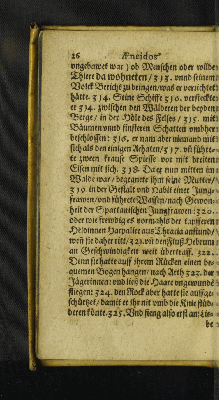 26 Æneidos
ungebawet war) ob Menschen oder wilde
Thiere da wohneten/ 313. unnd seinem
Volck Bericht zu bringen/ was er verrichtet
hätte. 314. Seine Schiff 310. versteckte
er 314. zwischen den Wäldern bey den
Berge/ in der Höle des Felses/ 315. mit
Bäumen unnd finsteren Schatten umbher
beschlossen: 316. er nam aber niemand mit
sich als den einigen Achaten/ 317. uñ führe-
te zween krause Spiesse vor mit breitem
Eisen mit sich. 318. Da er nun mitten im
Walde war/ begegnete ihm seine Mutter/
319. in der Gestalt und Habit einer Jung-
frawen/ und führete Waffen/ nach Gewon-
heit der Spartanischen Jungfrawen: 320.
oder wie freudig es vormahls der tapfferen
Heidinnen Harpalice aus Thracia anstund/
wen sie daher ritt/ 321. uñ den Fluß Hebrum
an Geschwindigkeit weit übertraff. 322.
Denn sie hatte auff ihrem Rücken einen be-
quemen Bogen hangen/ nach Arth 322. der
Jägerinnen: und ließ die Haare ungewunde
fliegen: 324. den Rock aber hatte sie auffge-
schürtzet/ damit er ihr nit umb die Knie flüd-
deren könte. 325. Und sieng also erst an:
be